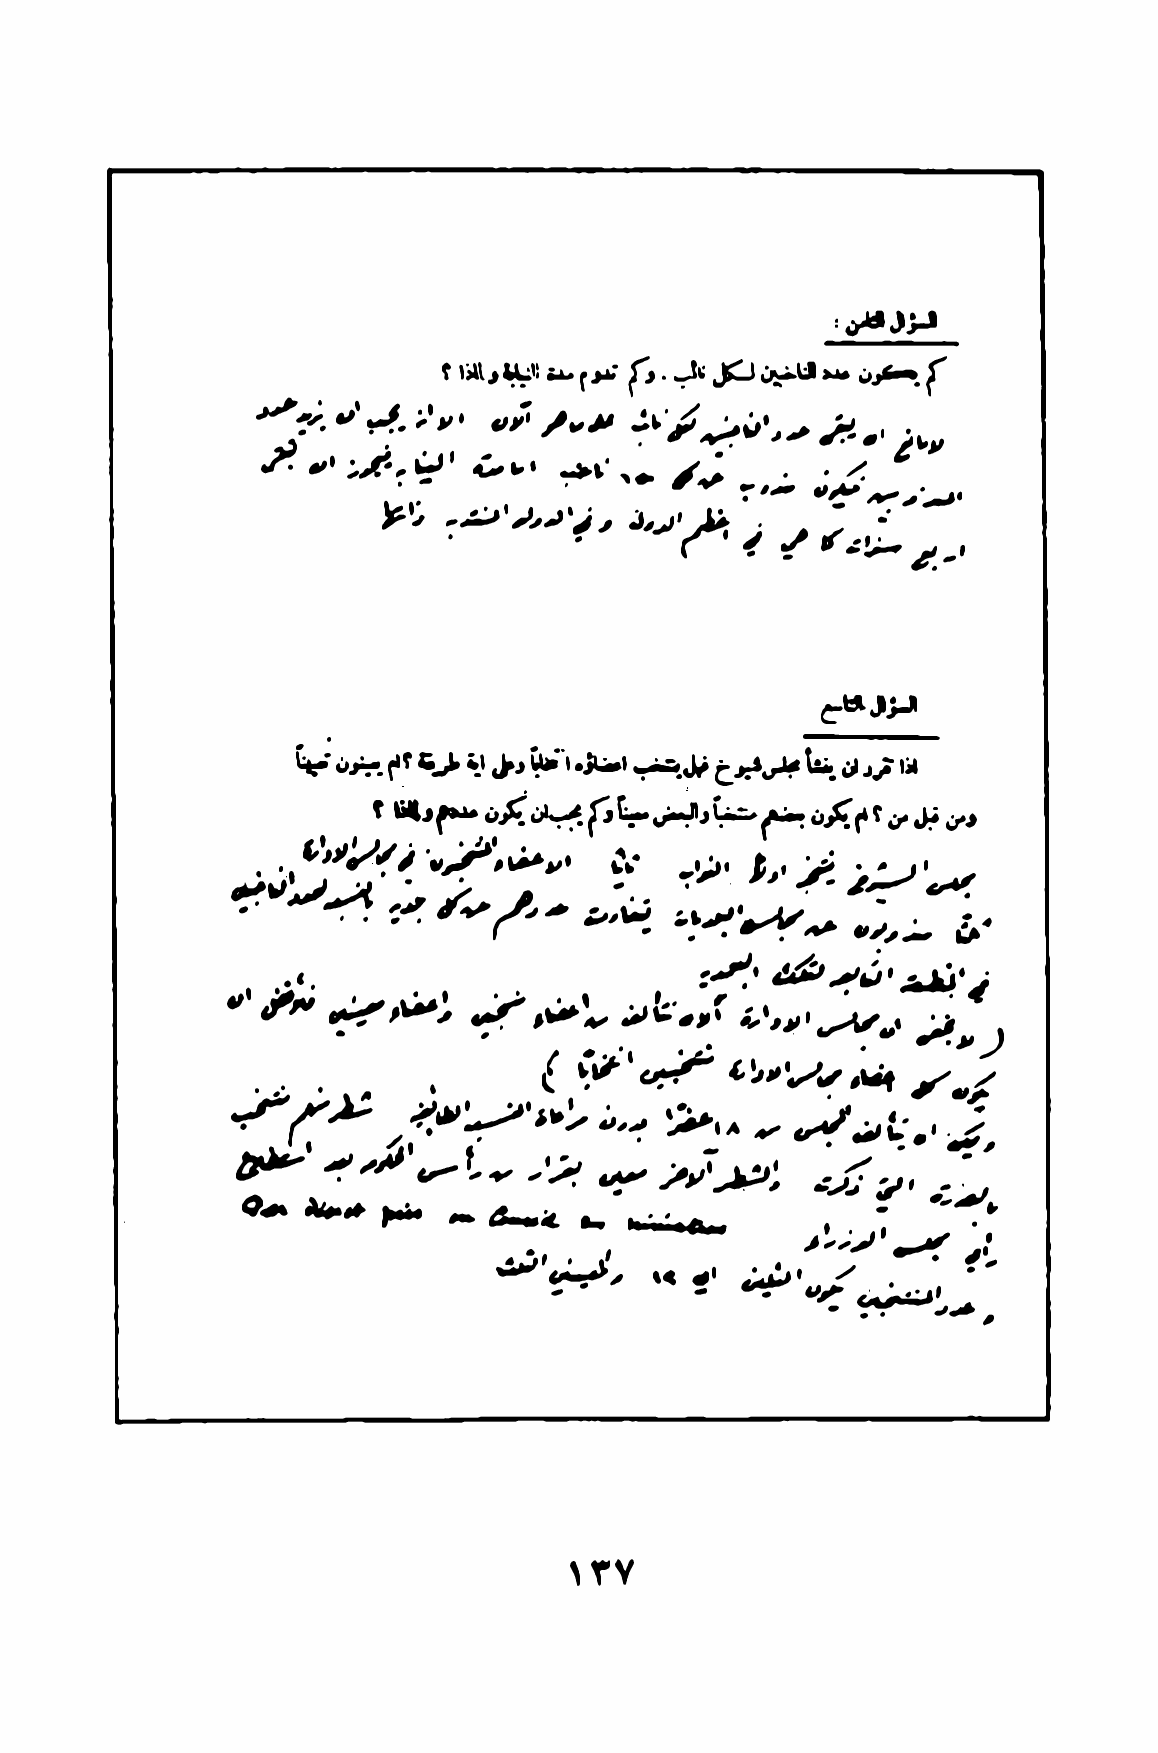 السؤال الثامن :
كم يكون عدد الناخبين لكل نائب . وكم تدوم مدة النيابة ولماذا ؟
لا مانع ان يبقى عدد الناخبين لكل نائب على ما هو الآن الا انه يجب ان يزيد عدد
المندوبين فيكون مندوب عن كل ١٥٠ ناخب اما مدة النيابة فيجوز ان تبقى
اربع سنوات كما هي في اعظم الدول وفي الدولة المنتدبة ذاتها
السؤال التاسع
اذا تقرر ان ينشأ مجلس شيوخ فهل ينتخب اعضاؤه انتخاباً وعلى اية طريقة ؟ ام يعينون تعييناً
ومن قبل من ؟ ام يكون بعضهم منتخباً والبعض معيناً وكم يجب ان يكون عددهم ولماذا ؟
مجلس الشيوخ ينتخبه اولاً النواب ثانياً الاعضاء المنتخبون في مجالس الادارة
ثالثاً مندوبون عن مجالس البلديات يتفاوت عددهم عن كل بلدية بالنسبة لعدد الناخبين
في المنطقة التابعة لتلك البلدية
( لا يخفى ان مجالس الادارة الآن تتألف من اعضاء منتخبين واعضاء معينين فنرى ان
يكون كل اعضاء مجالس الادارة منتخبين انتخاباً )
ويمكن ان يتألف المجلس من ١٨ عضواً بدون مراعاة النسبة الطائفية شطر منهم منتخب
بالصورة التي ذكرت والشطر الآخر معين بقرار من رأس الحكومة بعد استطلاع
رأي مجلس الوزراء
وعدد المنتخبين يكون الثلثين اي ١٢ والمعينين الثلث
١٣٧